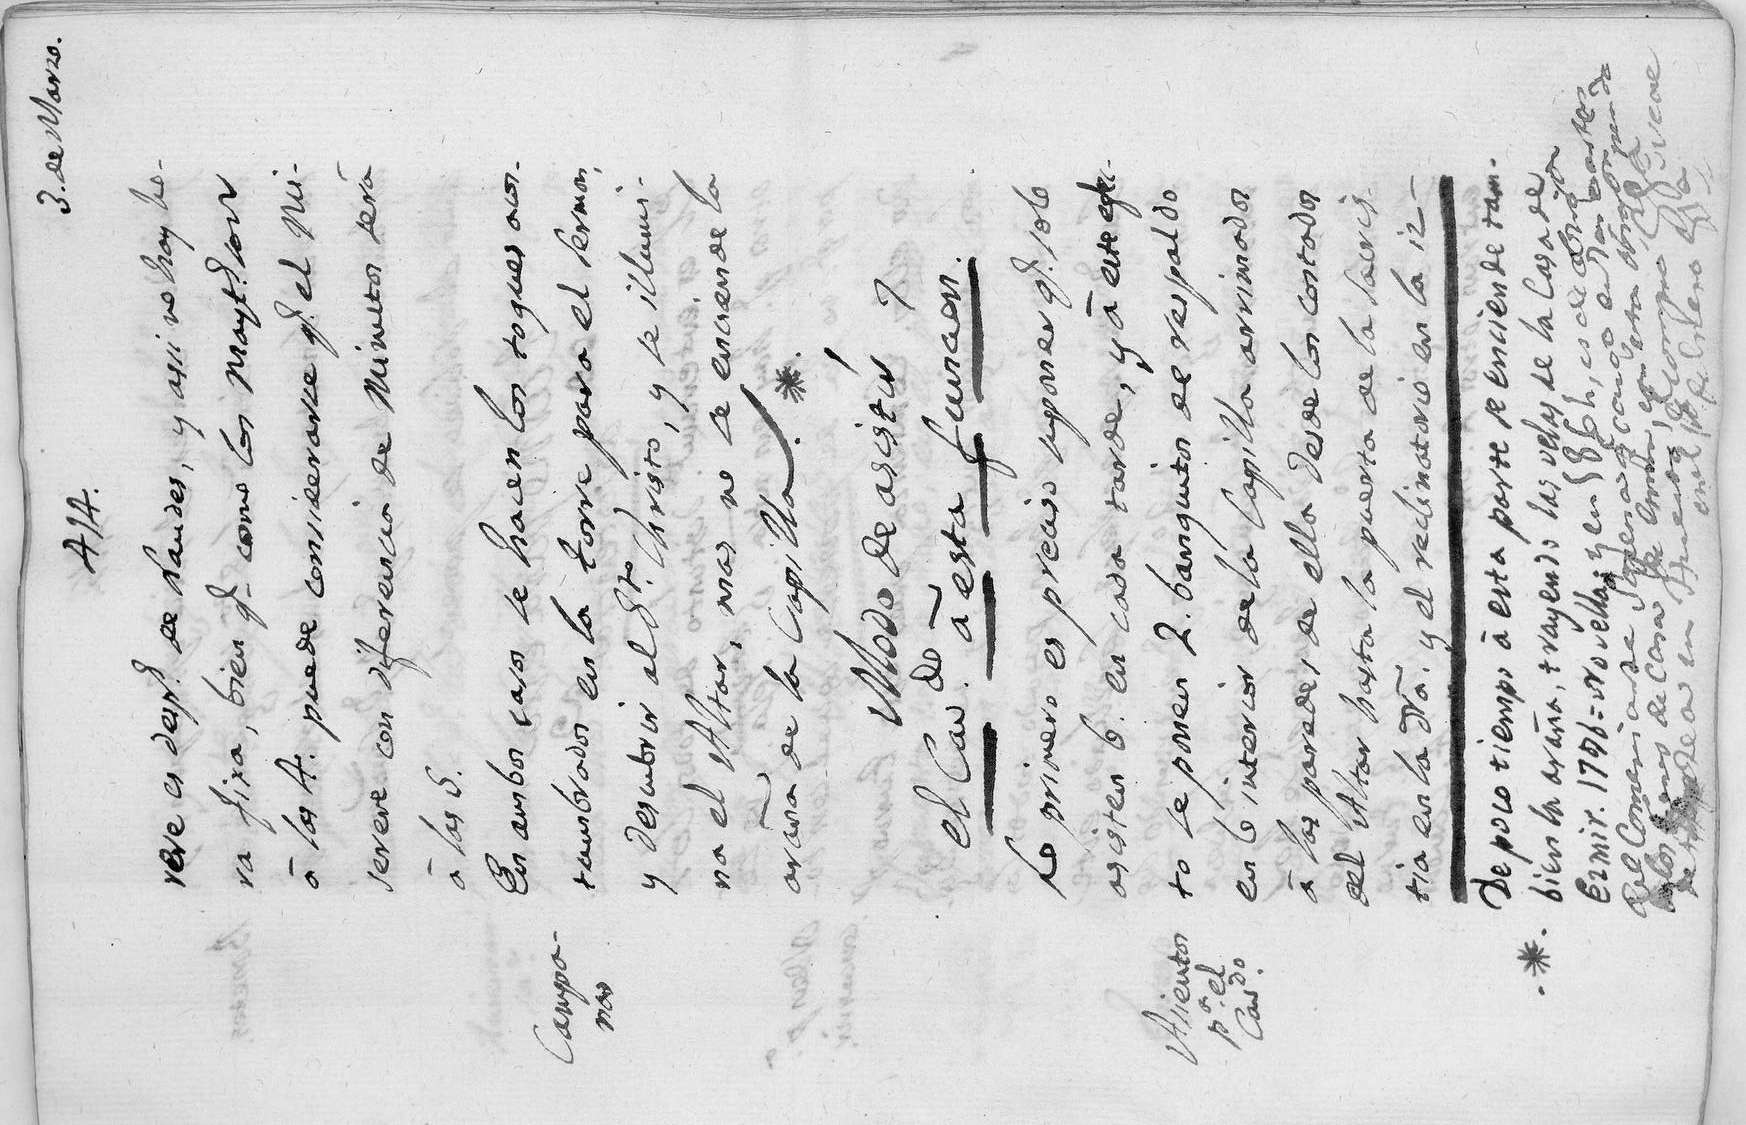 414.
3. de Marzo.
rere es desp.^s de Laudes, y assi no hay ho-
ra fixa, bien q.^e como los Mayt.^s son
â las 4. puede considerarse q.^e el Mi-
serere con diferencia de Minutos será
â las 5.
Campa-
nas
En ambos casos se hacen los toques acos-
tumbrados en la torre para el sermon,
y descubrir al S.^to Christo, y se illumi-
na el Altar, mas no se enciende la
araña de la Capilla. *.
Modo de asistir
el Cav.^do â esta funcion.
Asientos
p.^a el
Cav.^do
Lo primero es preciso suponer q.^e solo
asisten 6. en cada tarde, y â este efec-
to se ponen 2. banquitos de respaldo
en lo interior de la Capilla arrimados
â las paredes de ella desde los costados
del Altar hasta la puerta de la sacris-
tia en la dra. y el reclinatorio en la iz-
*. De poco tiempo â esta parte se enciende tam-
bien la araña, trayendo las velas de la Casa de
Ezmir. 1796 = no vellas y en
del Comensario se
de casa
en